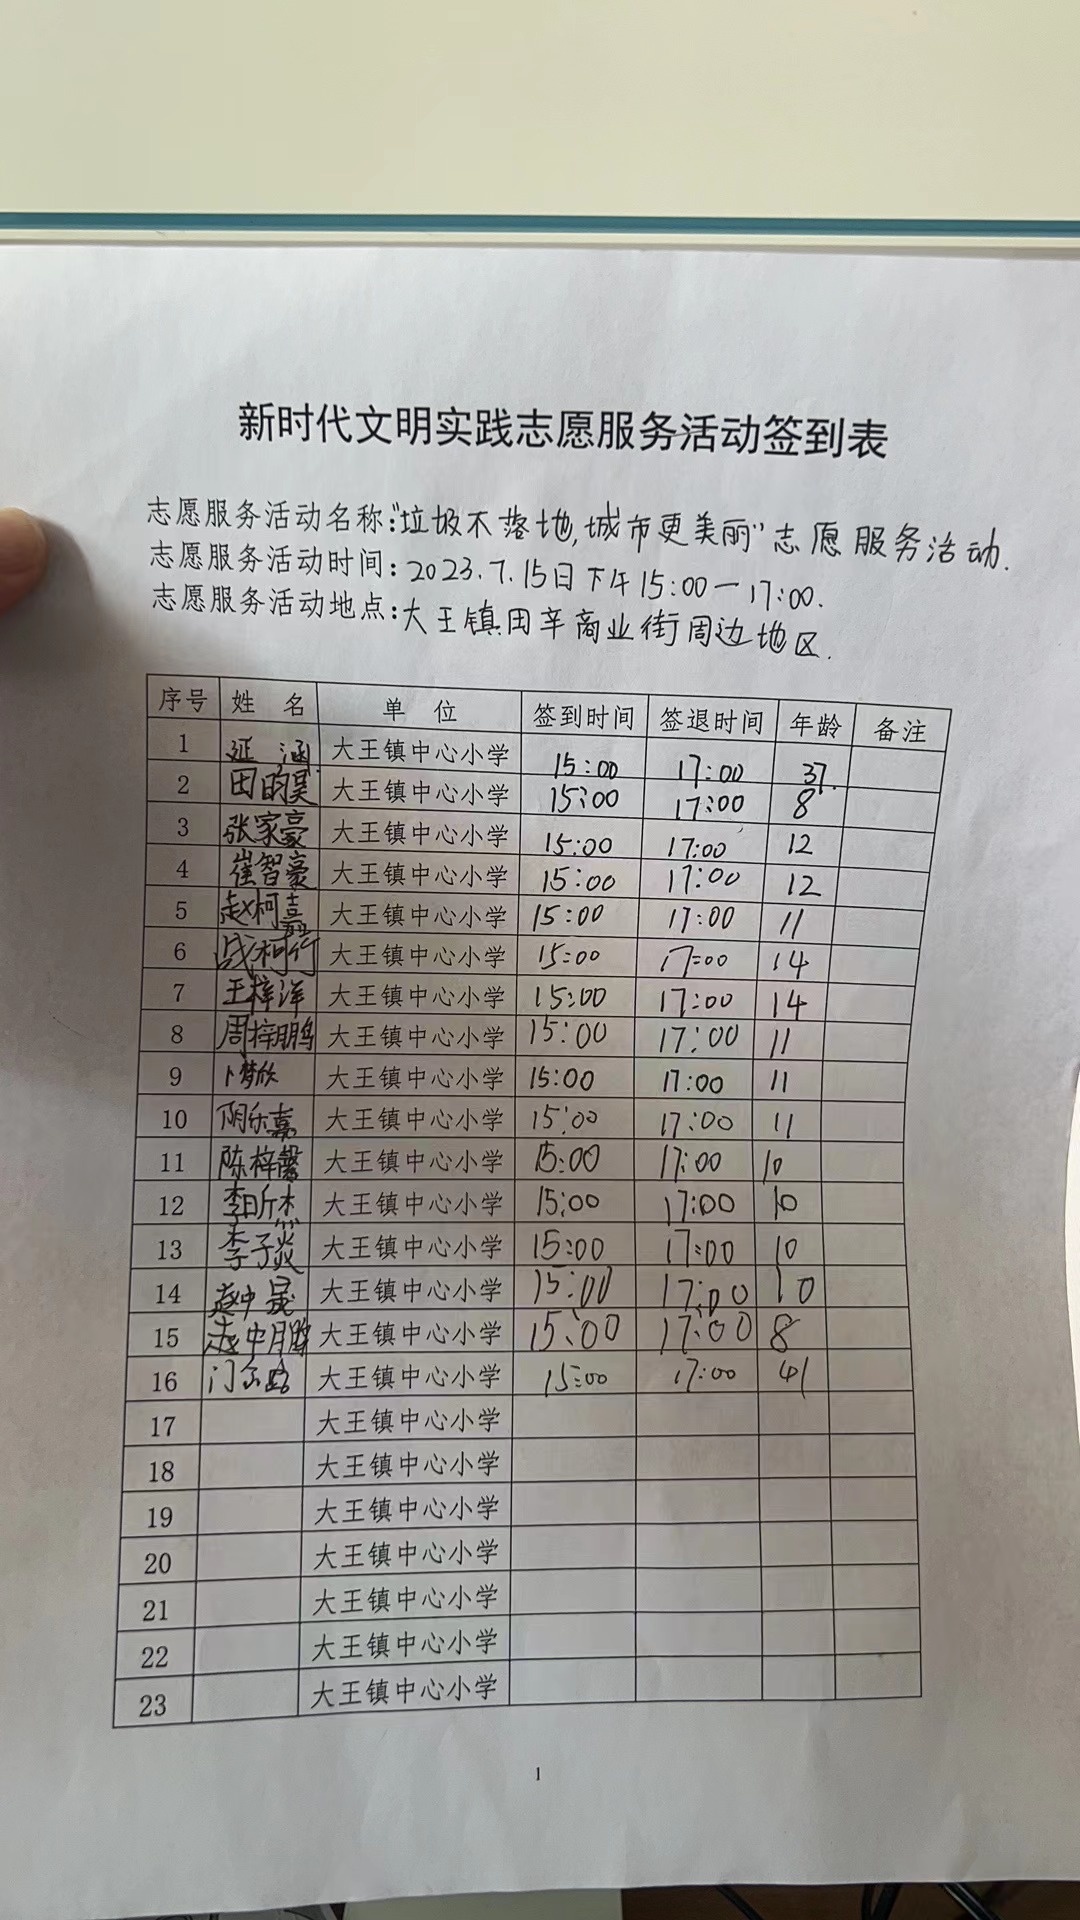 新时代文明实践志愿服务活动签到表
志愿服务活动名称:“垃圾不落地,城市更美丽”志愿服务活动.
志愿服务活动时间:2023.7.15日下午15:00—17:00.
志愿服务活动地点:大王镇田辛商业街周边地区.
序号 姓 名 单 位 签到时间 签退时间 年龄 备注
1 延 涵 大王镇中心小学 15:00 17:00 37.
2 田昀昊 大王镇中心小学 15:00 17:00 8
3 张家豪 大王镇中心小学 15:00 17:00 12
4 崔智豪 大王镇中心小学 15:00 17:00 12
5 赵柯嘉 大王镇中心小学 15:00 17:00 11
6 战柯竹 大王镇中心小学 15:00 17:00 14
7 王梓洋 大王镇中心小学 15:00 17:00 14
8 周梓鹏 大王镇中心小学 15:00 17:00 11
9 卜梦欣 大王镇中心小学 15:00 17:00 11
10 阴乐嘉 大王镇中心小学 15:00 17:00 11
11 陈梓馨 大王镇中心小学 15:00 17:00 10
12 李昕杰 大王镇中心小学 15:00 17:00 10
13 李子炎 大王镇中心小学 15:00 17:00 10
14 赵中晟 大王镇中心小学 15:00 17:00 10
15 赵中 大王镇中心小学 15:00 17:00 8
16 大王镇中心小学 15:00 17:00 41
17 大王镇中心小学
18 大王镇中心小学
19 大王镇中心小学
20 大王镇中心小学
21 大王镇中心小学
22 大王镇中心小学
23 大王镇中心小学
1